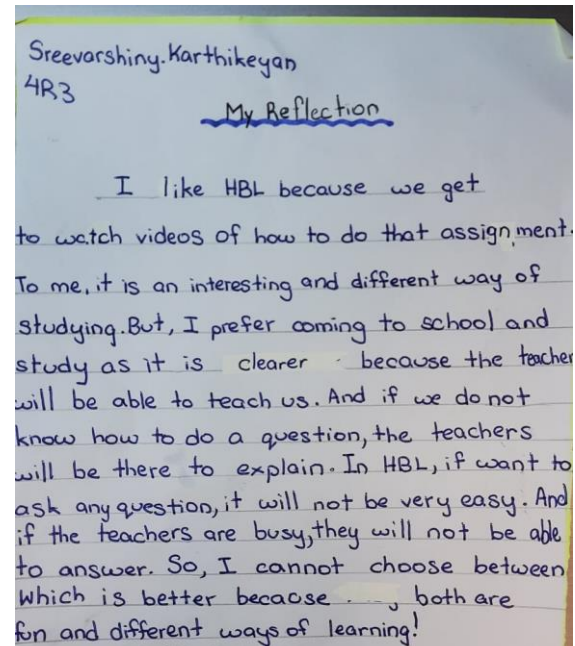 Sreevarshiny.Karthikeyan
4R3
My Reflection
I like HBL because we get
to watch videos of how to do that assignment.
To me, it is an interesting and different way of
studying. But, I prefer coming to school and
study as it is clearer because the teacher
will be able to teach us. And if we do not
know how to do a question, the teachers
will be there to explain. In HBL, if want to
ask any question, it will not be very easy. And
if the teachers are busy, they will not be able
to answer. So, I cannot choose between
which is better because both are
fun and different ways of learning!